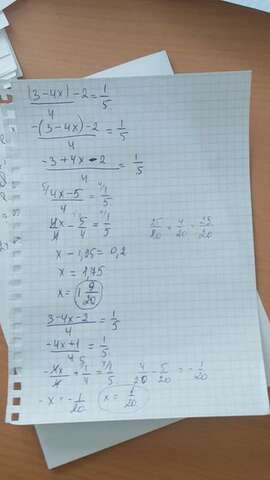 (3-4x)-2/4 = 1/5
-(3-4x)-2/4 = 1/5
-3+4x-2/4 = 1/5
5/ 4x-5/4 = 4/ 1/5
4x/4 - 5/4 = 1/5 25/20 + 4/20 = 29/20
x - 1,25 = 0,2
x = 1,75
x = 1 9/20
3-4x-2/4 = 1/5
-4x+1/4 = 1/5
-4x/4 + 5/ 1/4 = 4/ 1/5 4/20 - 5/20 = -1/20
-x = -1/20 x = 1/20